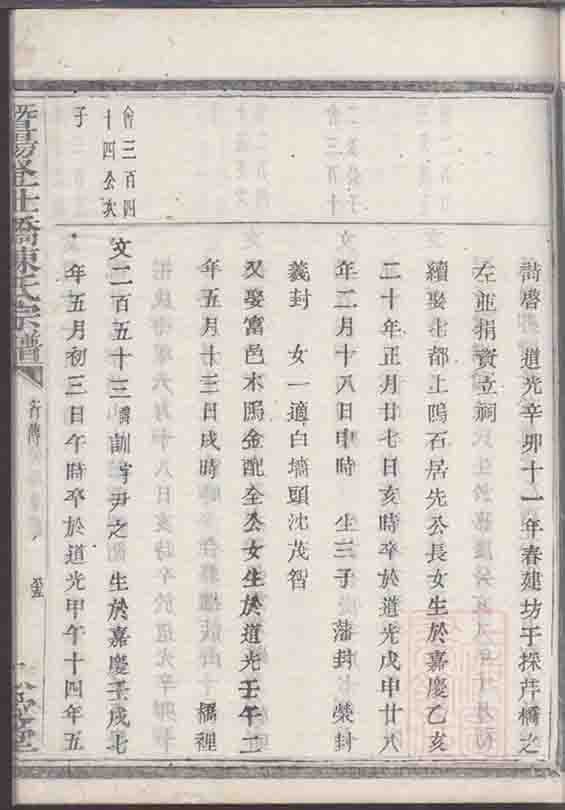 道光辛卯十一年春建坊于採芹橋之
左並捐資立祠
續娶北都上隖石居先公長女生於嘉慶乙亥
二十年正月廿七日亥時卒於道光戊申廿八
年二月十八日申時 生三子 藩封 榮封
義封 女一適白墻頭沈茂智
又娶富邑木隖金配全公女生於道光壬午二
年五月十三日戌時 橋裡
會三百四
十四公次
子
文二百五十三 諱訓 字尹之 生於嘉慶壬戌七
年五月初三日午時卒於道光甲午十四年五
暨陽 社橋陳氏宗譜
行傳